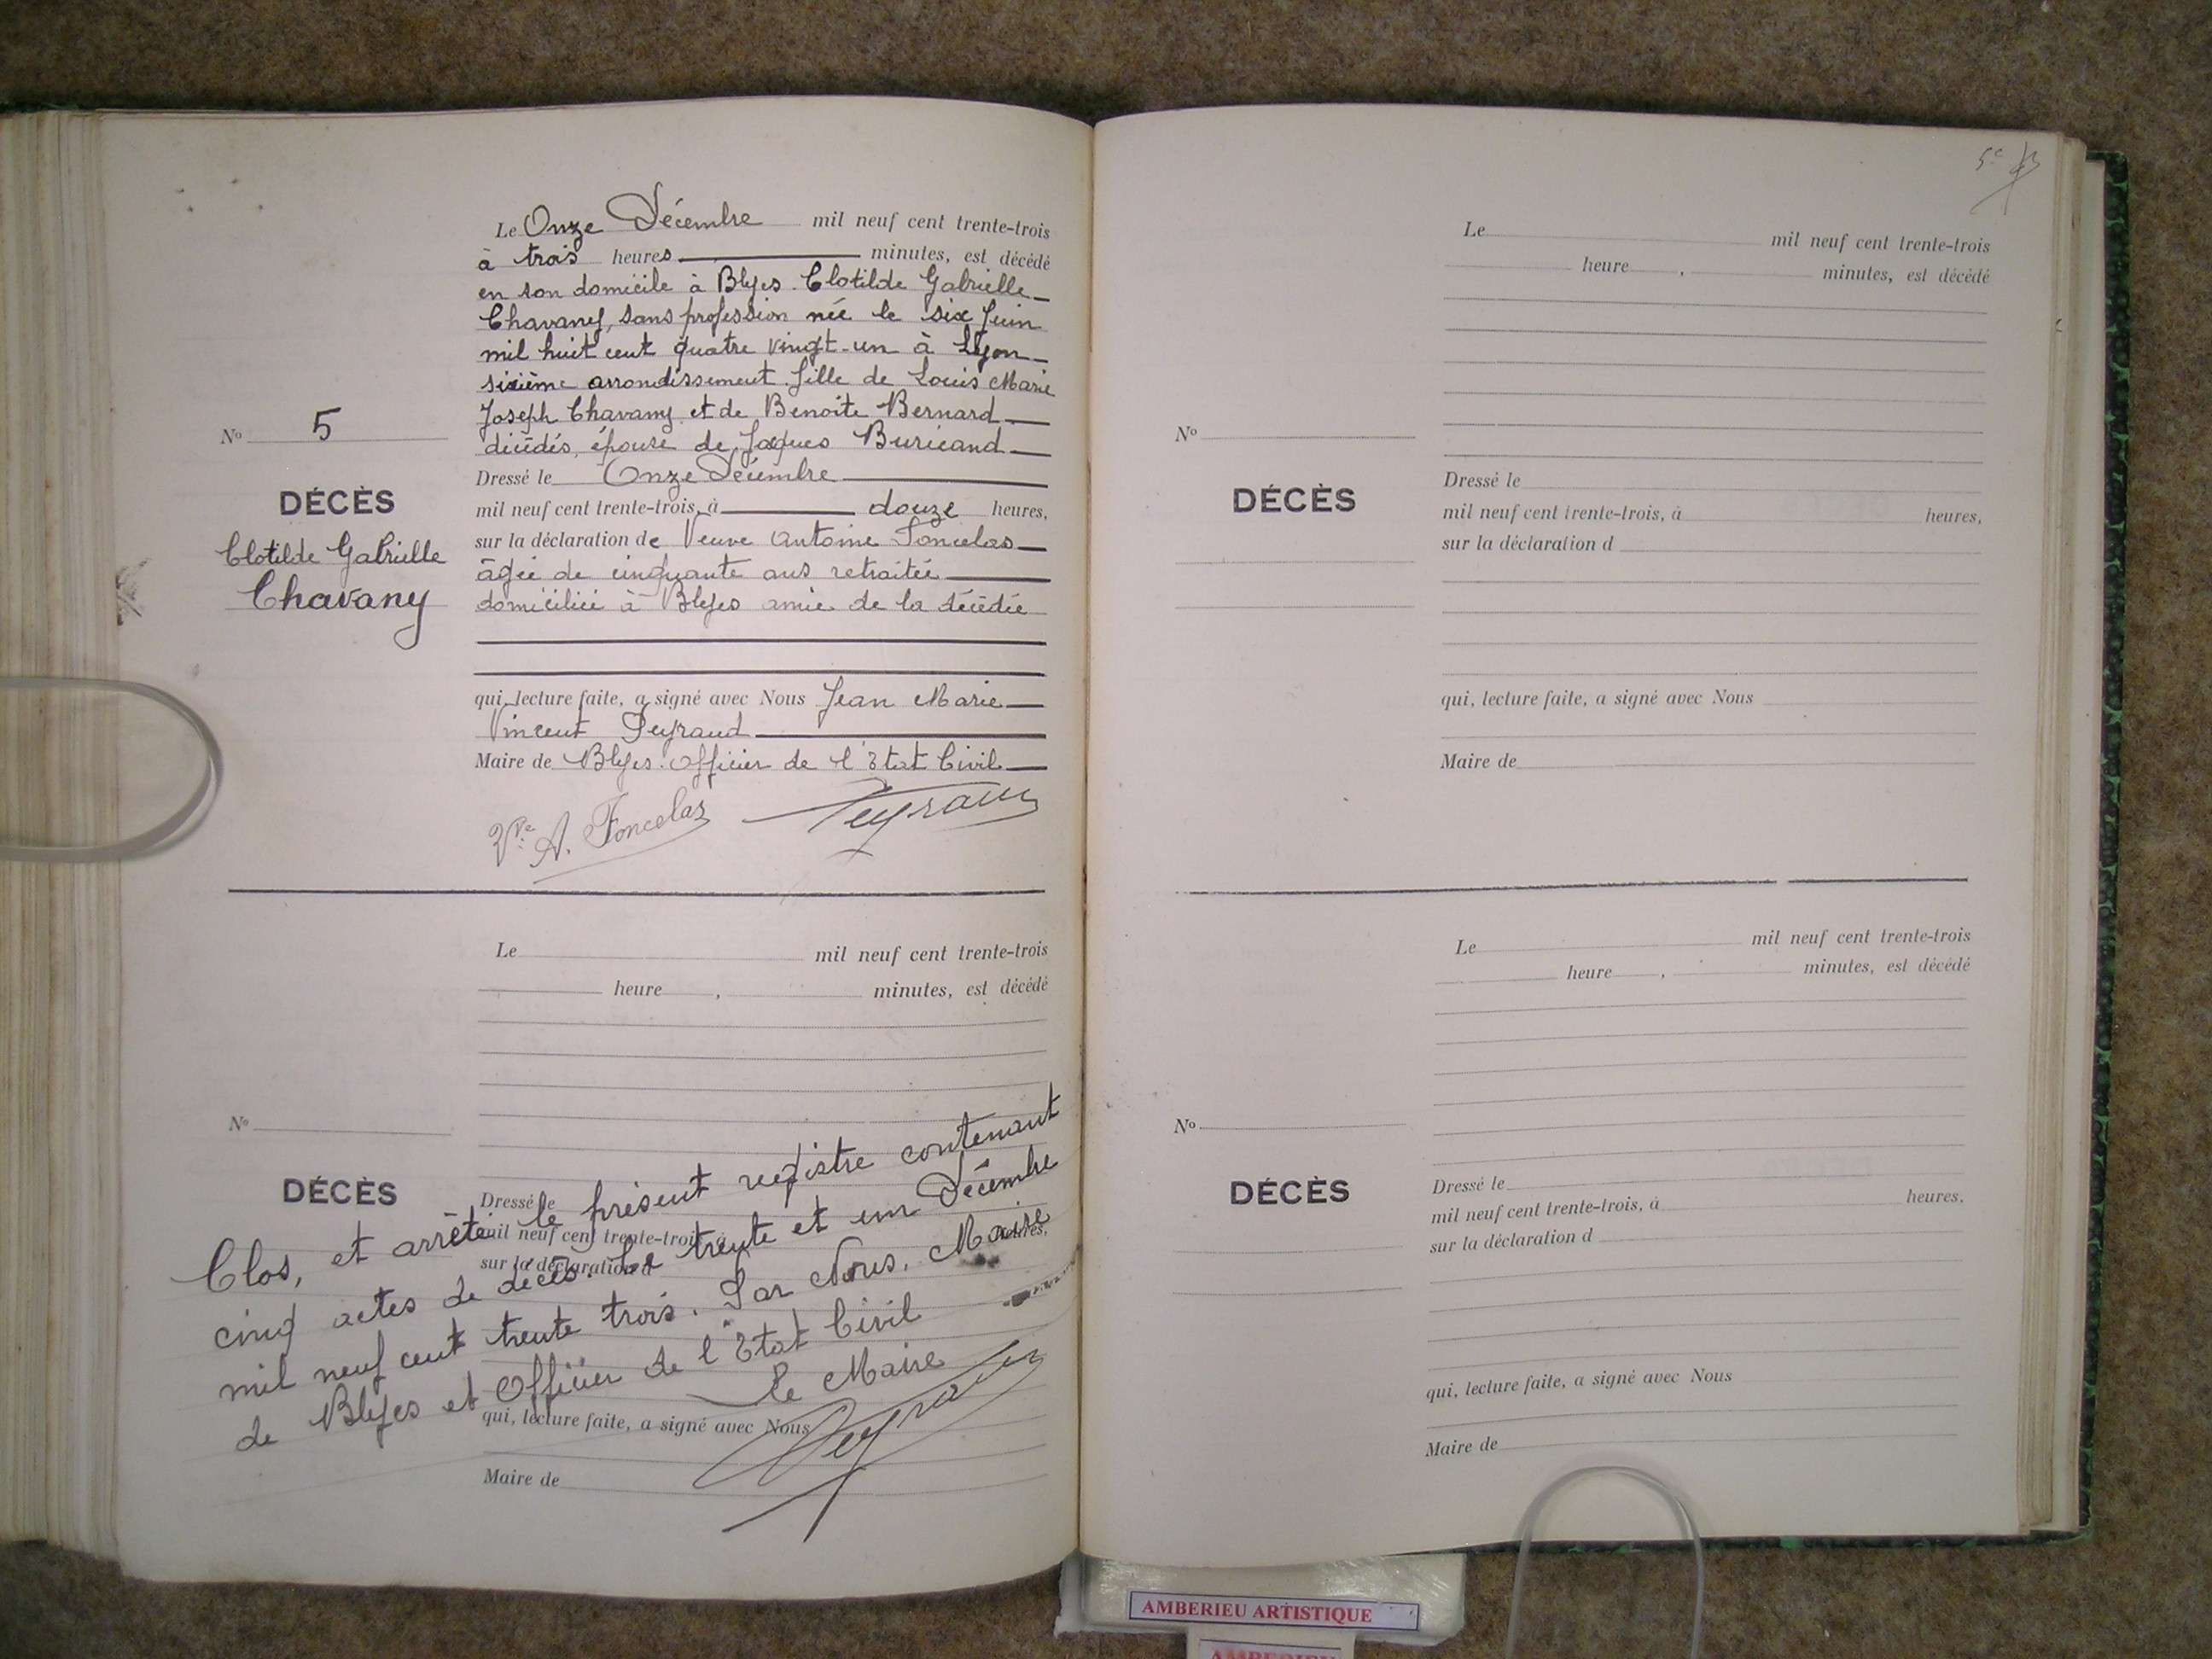 Le Onze Décembre mil neuf cent trente-trois
à trois heures minutes, est décédé
en son domicile à Blyes. Clotilde Gabrielle
Chavany, sans profession née le six Juin
mil huit cent quatre vingt-un à Lyon
sixième arrondissement. fille de Louis Marie
Joseph Chavany et de Benoite Bernard
décédés, épouse de Jacques Buricand
No 5
DÉCÈS
Clotilde Gabrielle
Chavany
Dressé le Onze Décembre
mil neuf cent trente-trois, à douze heures,
sur la déclaration de Veuve Antoine Foncelas
âgée de cinquante ans retraitée
domiciliée à Blyes amie de la décédée
qui, lecture faite, a signé avec Nous Jean Marie
Vincent Peyraud
Maire de Blyes. Officier de l'Etat Civil
Vve A. Foncelas Peyraud
Le mil neuf cent trente-trois
heure , minutes, est décédé
No
DÉCÈS
Dressé le
mil neuf cent trente-trois, à heures,
sur la déclaration d
qui, lecture faite, a signé avec Nous
Maire de
Clos, et arrêté le présent registre contenant
cinq actes de décès. Le trente et un Décembre
mil neuf cent trente trois. Par Nous, Maire
de Blyes et Officier de l'Etat Civil
Le Maire
Peyraud
Le mil neuf cent trente-trois
heure , minutes, est décédé
No
DÉCÈS
Dressé le
mil neuf cent trente-trois, à heures,
sur la déclaration d
qui, lecture faite, a signé avec Nous
Maire de
Le mil neuf cent trente-trois
heure , minutes, est décédé
No
DÉCÈS
Dressé le
mil neuf cent trente-trois, à heures,
sur la déclaration d
qui, lecture faite, a signé avec Nous
Maire de
AMBERIEU ARTISTIQUE
AMBERIEU